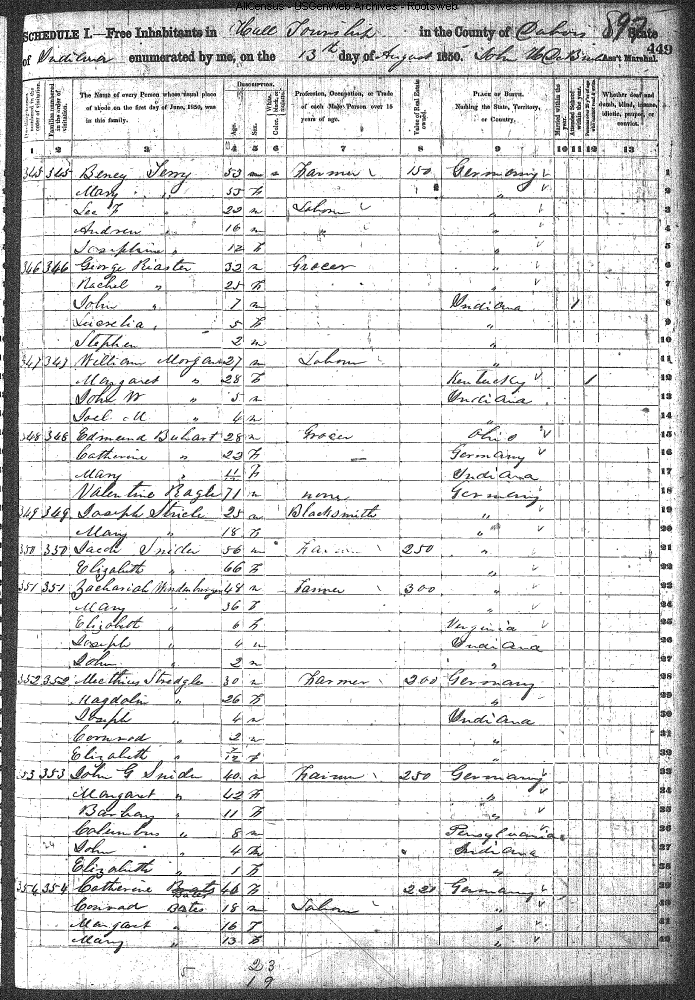 AllCensus - USGenWeb Archives - Rootsweb
SCHEDULE I.—Free Inhabitants in Hall Township in the County of State 892
of Indiana enumerated by me, on the 13th day of August 1850. John Ass't Marshal. 449
Dwelling-houses numbered in the order of visitation.
Families numbered in the order of visitation.
The Name of every Person whose usual place of abode on the first day of June, 1850, was in this family.
DESCRIPTION.
Age. Sex. Color. White, black, or mulatto.
Profession, Occupation, or Trade of each Male Person over 15 years of age.
Value of Real Estate owned.
PLACE OF BIRTH. Naming the State, Territory, or Country.
Married within the year.
Attended School within the year.
Whether deaf and dumb, blind, insane, idiotic, pauper, or convict.
1 2 3 4 5 6 7 8 9 10 11 12 13
345 345 Terry 53 m Farmer 150 Germany 1
Mary " 53 F " 2
F " 22 m Labour " 3
Andrew " 16 m " " 4
Josephine " 12 F " 5
346 346 George Riaster 32 m Grocer " 6
Rachel " 25 F " 7
John " 7 m Indiana 1 8
" 5 F " 9
Stephen " 2 m " 10
347 347 William Morgan 27 m Labour " 11
Margaret " 28 F Kentucky 1 12
John W " 5 m Indiana 13
Joel M " 4 m " 14
348 348 Edmund Buhart 28 m Grocer Ohio 15
Catherine " 22 F Germany 16
Mary " 11/12 F Indiana 17
Valentine Ragle 71 m none Germany 18
349 349 Joseph 25 m Blacksmith " 19
Mary " 18 F " 20
350 350 Jacob Snider 56 m Farmer 250 " 21
Elizabeth " 66 F " 22
351 351 Zachariah 48 m Farmer 300 " 23
Mary " 36 F " 24
Elizabeth " 6 F Virginia 25
Joseph " 4 m Indiana 26
John " 2 m " 27
352 352 30 m Farmer 200 Germany 28
Magdolin " 26 F " 29
Joseph " 4 m Indiana 30
Connrod " 2 m " 31
Elizabeth " F " 32
353 353 John G Snider 40 m Farmer 250 Germany 33
Margaret " 42 F " 34
Barbary " 11 F " 35
Columbus " 8 m Pensylvania 36
John " 4 m Indiana 37
Elizabeth " 1 F " 38
354 354 Catherine Bates 46 F 220 Germany 39
Conrad Bates 18 m Labour " 40
Margart " 16 F " 41
Mary " 13 F " 42
5 23
19